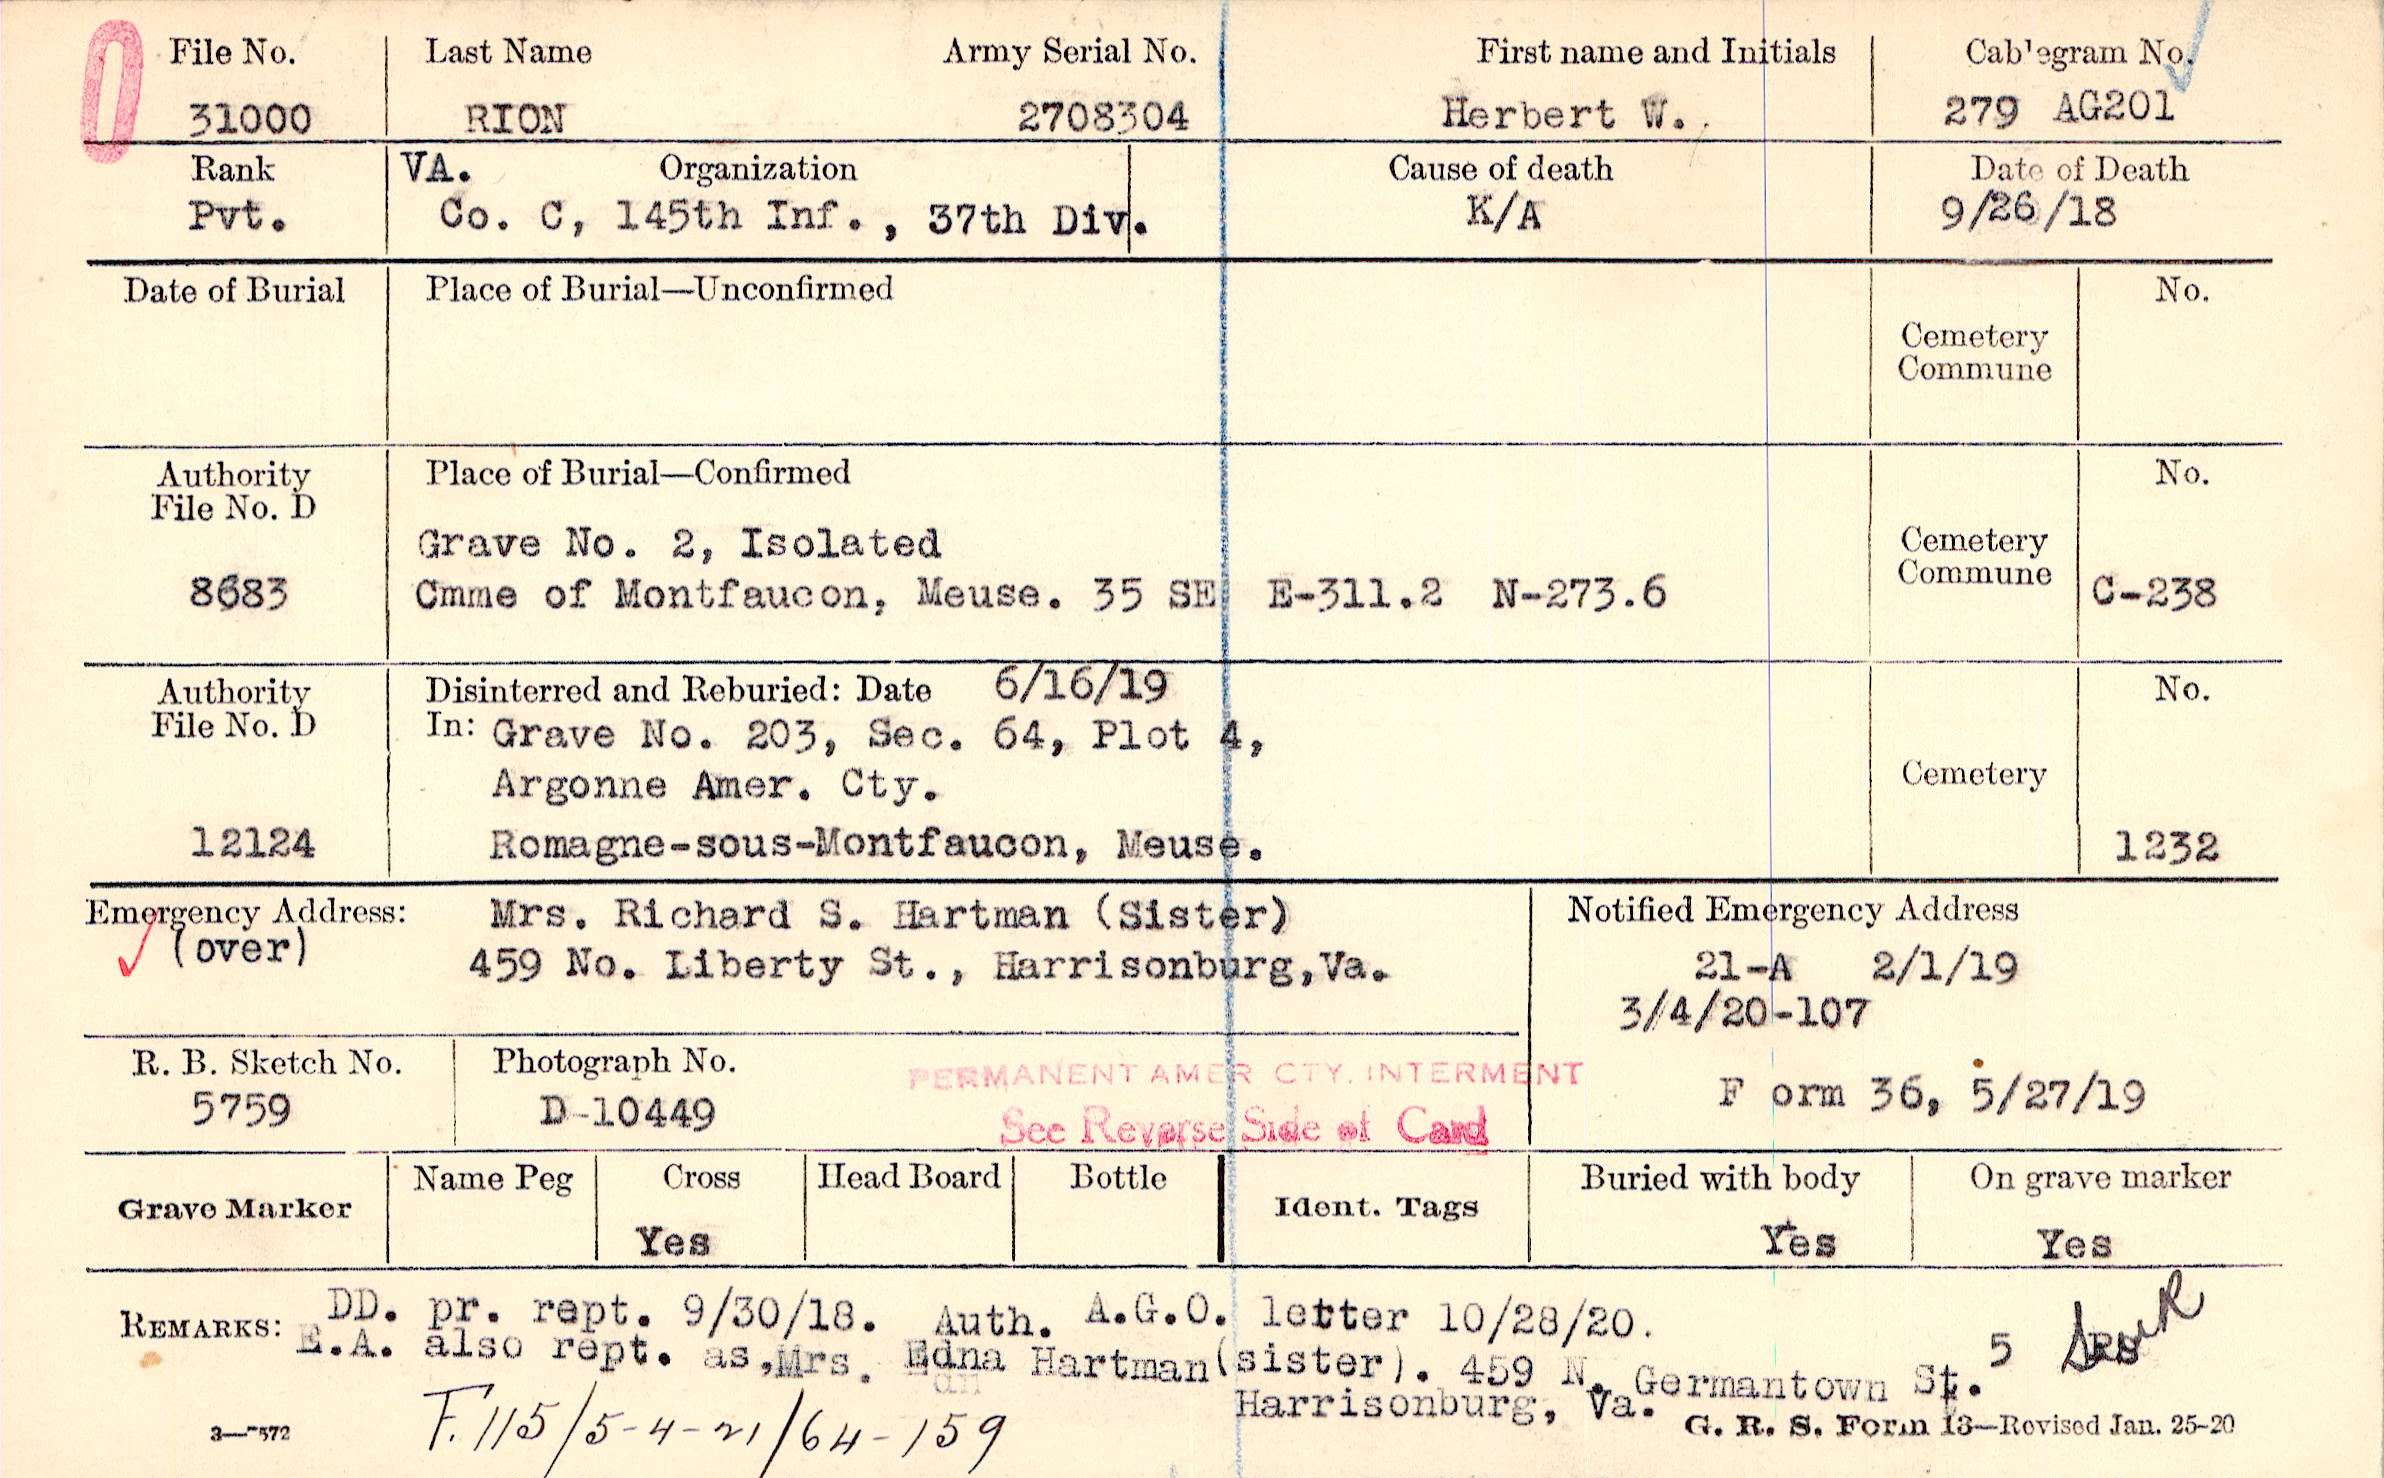 File No. Last Name Army Serial No. First name and Initials Cab'egram No.
31000 RION 2708304 Herbert W. 279 AG201
Rank VA. Organization Cause of death Date of Death
Pvt. Co. C, 145th Inf., 37th Div. K/A 9/26/18
Date of Burial Place of Burial—Unconfirmed No.
Cemetery
Commune
Authority Place of Burial—Confirmed No.
File No. D
Grave No. 2, Isolated Cemetery
8683 Cmme of Montfaucon, Meuse. 35 SE E-311.2 N-273.6 Commune C-238
Authority Disinterred and Reburied: Date 6/16/19 No.
File No. D In: Grave No. 203, Sec. 64, Plot 4,
Argonne Amer. Cty. Cemetery
12124 Romagne-sous-Montfaucon, Meuse. 1232
Emergency Address: Mrs. Richard S. Hartman (Sister) Notified Emergency Address
(over) 459 No. Liberty St., Harrisonburg,Va. 21-A 2/1/19
3/4/20-107
R. B. Sketch No. Photograph No. PERMANENT AMER CTY. INTERMENT
5759 D-10449 See Reverse Side of Card F orm 36, 5/27/19
Grave Marker Name Peg Cross Head Board Bottle Ident. Tags Buried with body On grave marker
Yes Yes Yes
REMARKS: DD. pr. rept. 9/30/18. Auth. A.G.O. letter 10/28/20.
E.A. also rept. as, Mrs. Edna Hartman(sister). 459 N. Germantown St. 5
Harrisonburg, Va.
F.115/5-4-21/64-159
3—7572 G. R. S. Form 13—Revised Jan. 25-20